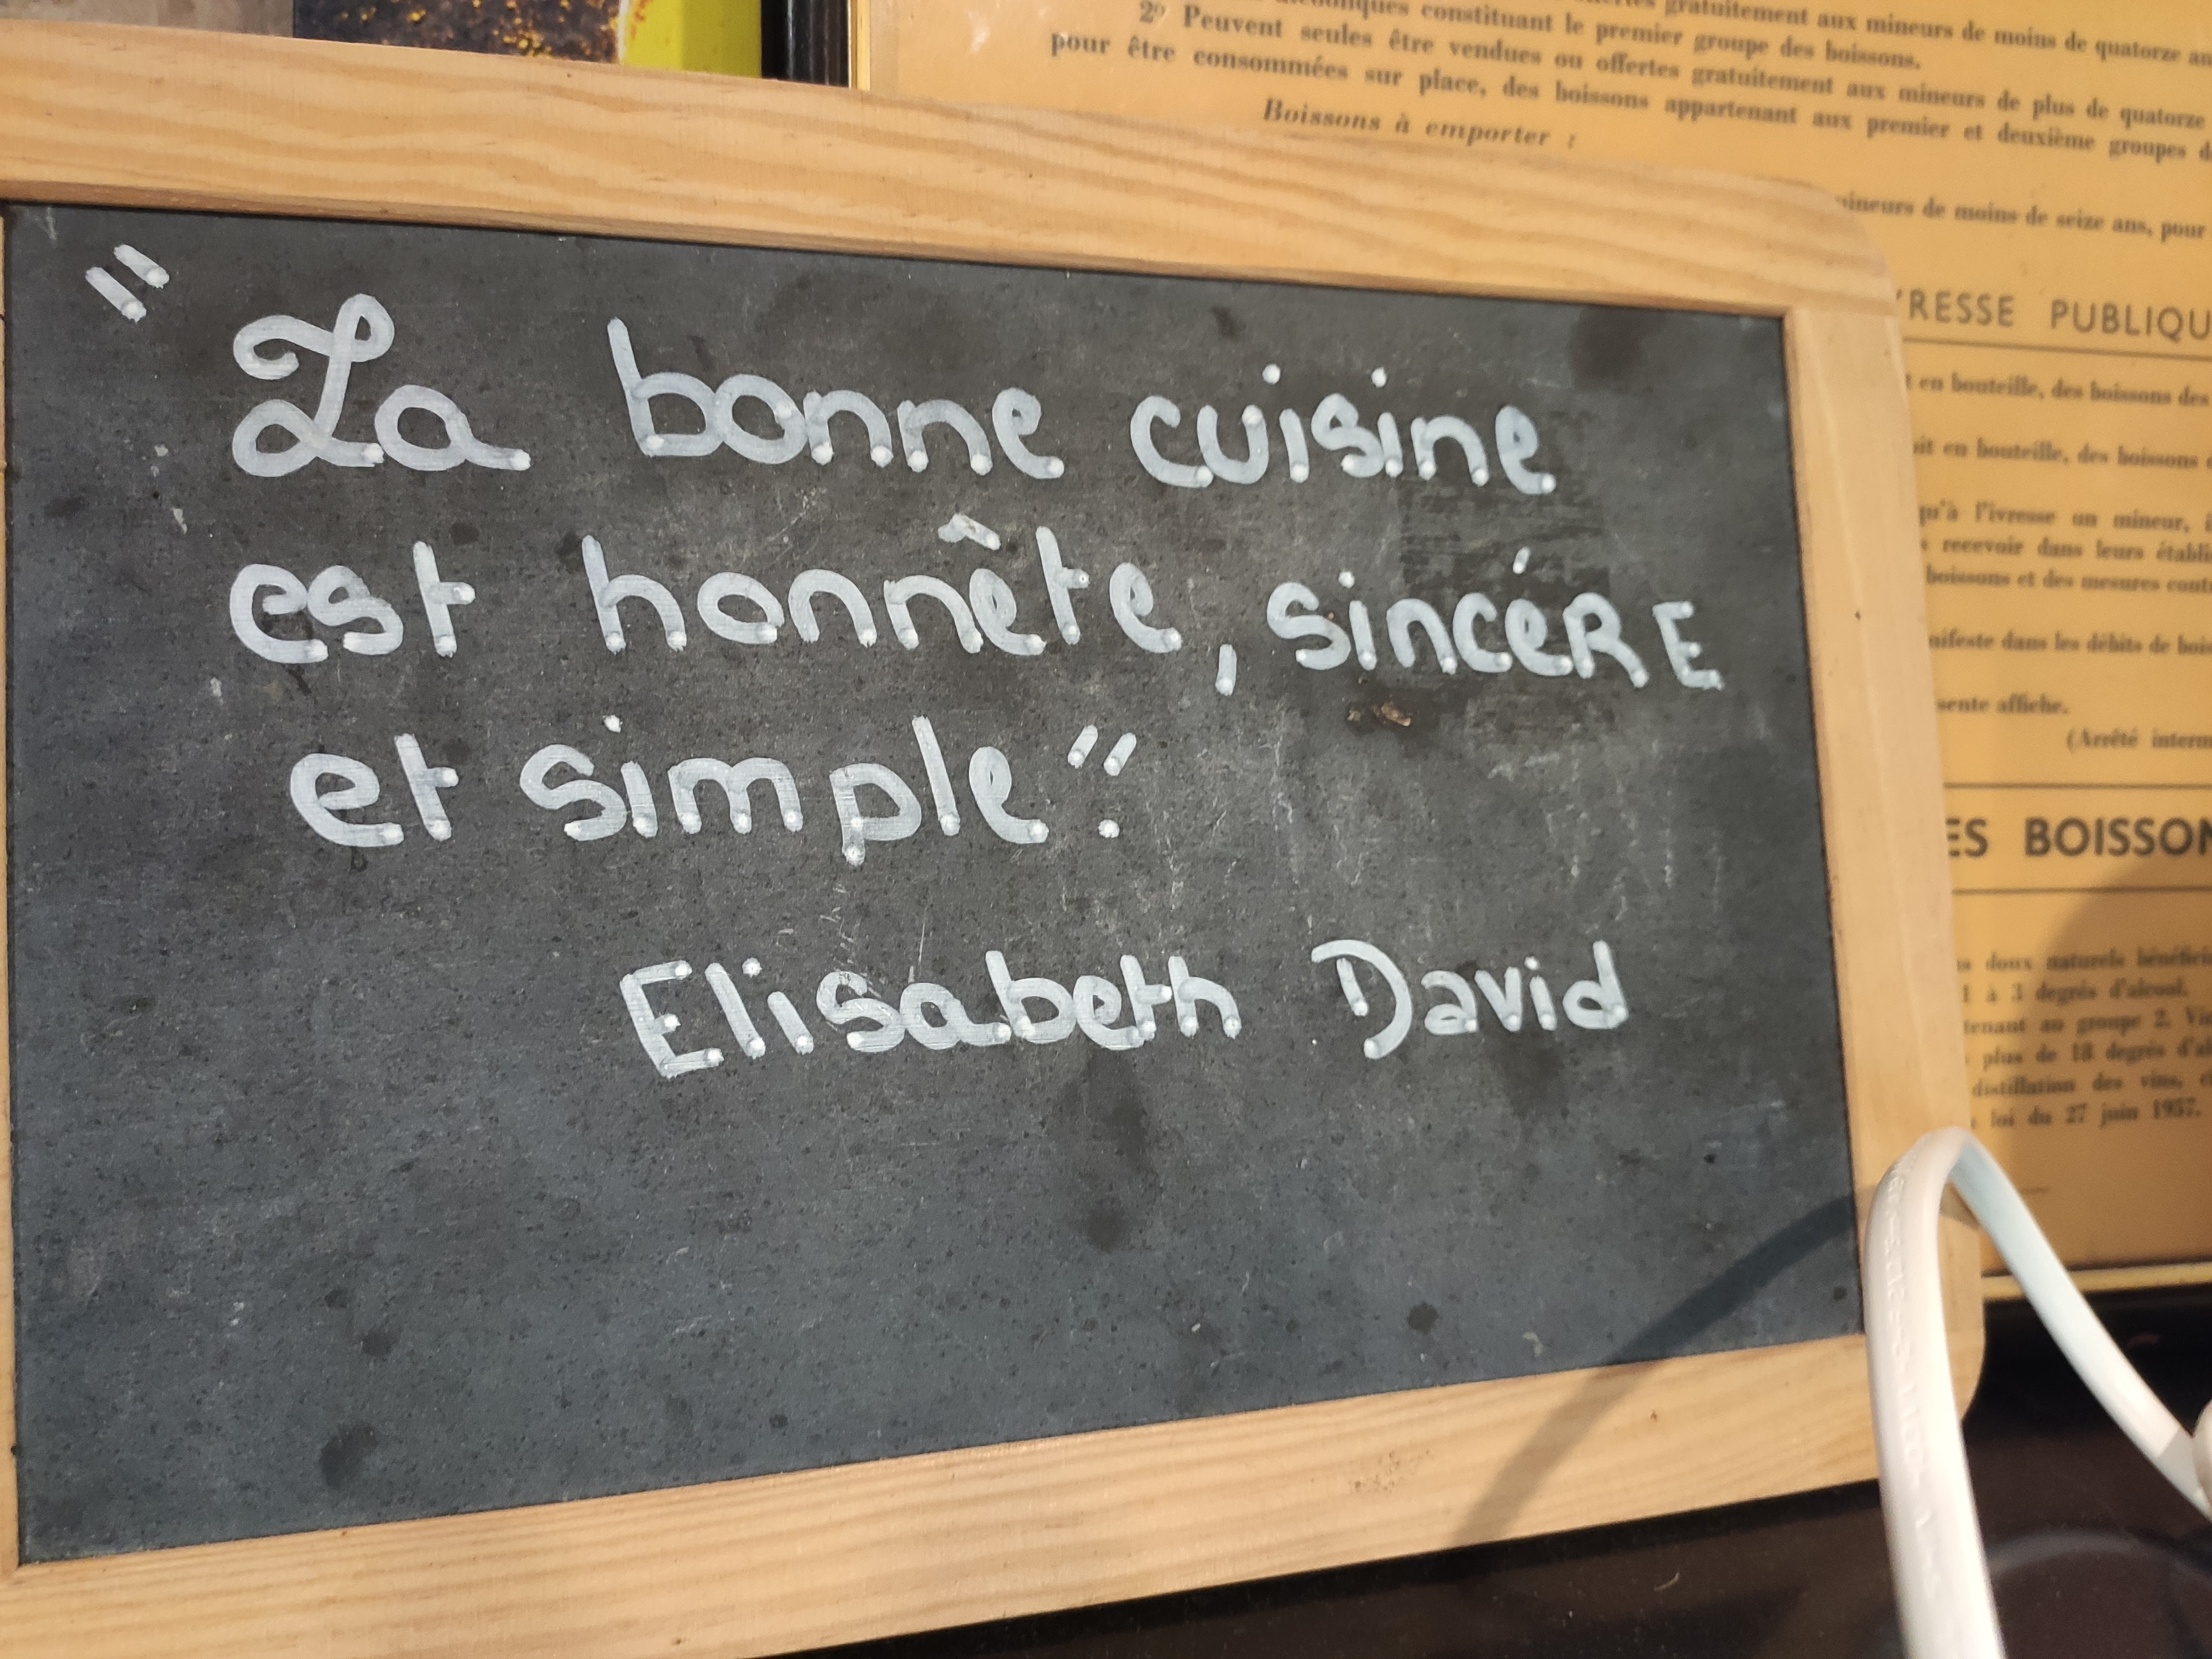 gratuitement aux mineurs de moins de quatorze
constituant le premier groupe des boissons.
2° Peuvent seules être vendues ou offertes gratuitement aux mineurs de plus de quatorze
pour être consommées sur place, des boissons appartenant aux premier et deuxième groupes
Boissons à emporter :
mineurs de moins de seize ans, pour
RESSE PUBLIQU
en bouteille, des boissons des
en bouteille, des boissons
qu'à l'ivresse un mineur,
recevoir dans leurs
boissons et des mesures
dans les débits de
sente affiche.
(Arrêté
ES BOISSON
doux naturels
1 à 3 degrés d'alcool.
au groupe 2.
plus de 18 degrés
distillation des vins,
loi du 27 juin 1957.
"La bonne cuisine
est honnête, sincéRE
et simple".
Elisabeth David